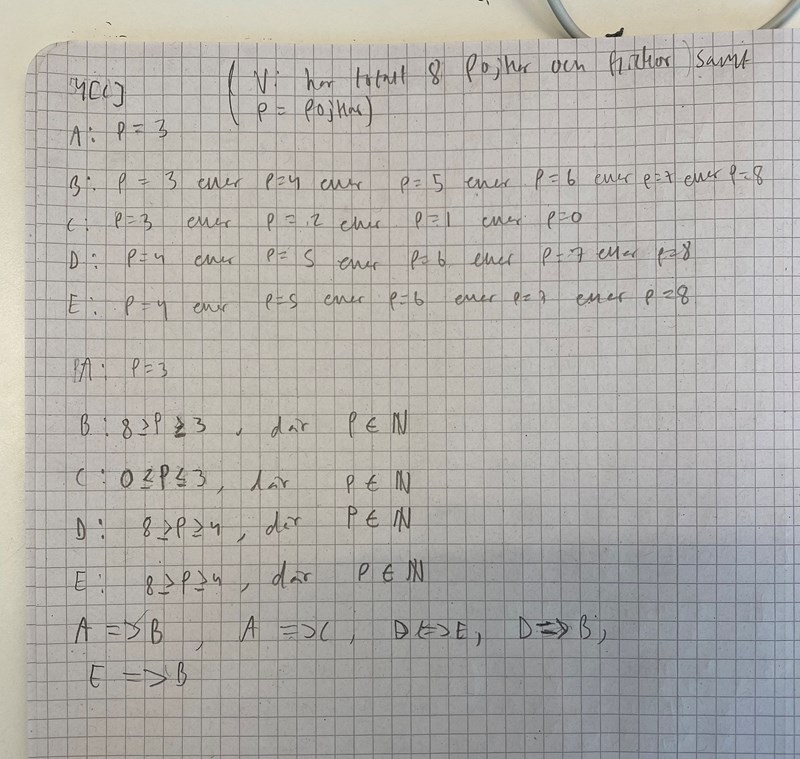 4[c] ( Vi har totalt 8 pojkar och flickor) samt
( p = pojkar)
A: p = 3
B: p = 3 eller p=4 eller p=5 eller p=6 eller p=7 eller p=8
C: p=3 eller p=2 eller p=1 eller p=0
D: p=4 eller p=5 eller p=6 eller p=7 eller p=8
E: p=4 eller p=5 eller p=6 eller p=7 eller p=8
A: p=3
B: 8≥p≥3, där p∈ℕ
C: 0≤p≤3, där p∈ℕ
D: 8≥p≥4, där p∈ℕ
E: 8≥p≥4, där p∈ℕ
A => B, A => C, D <=> E, D => B,
E => B